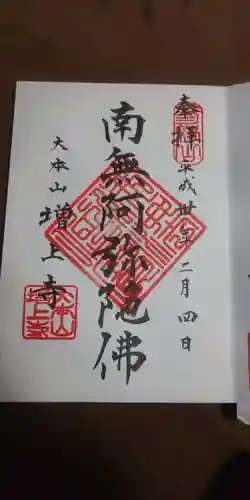 奉拝 平成卅年二月四日
南無阿弥陀佛
大本山 増上寺
大本山
増上寺